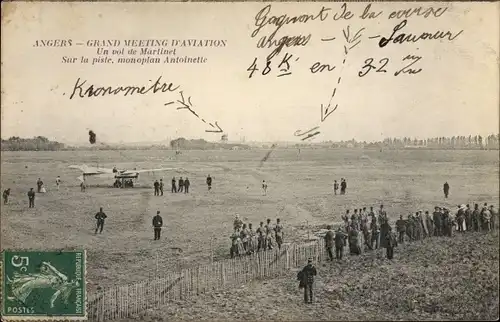 ANGERS - GRAND MEETING D'AVIATION
Un vol de Martinet
Sur la piste, monoplan Antoinette
Gagnant de la course
angers - Savour
48 K en 32
Kronometre
5c
POSTES